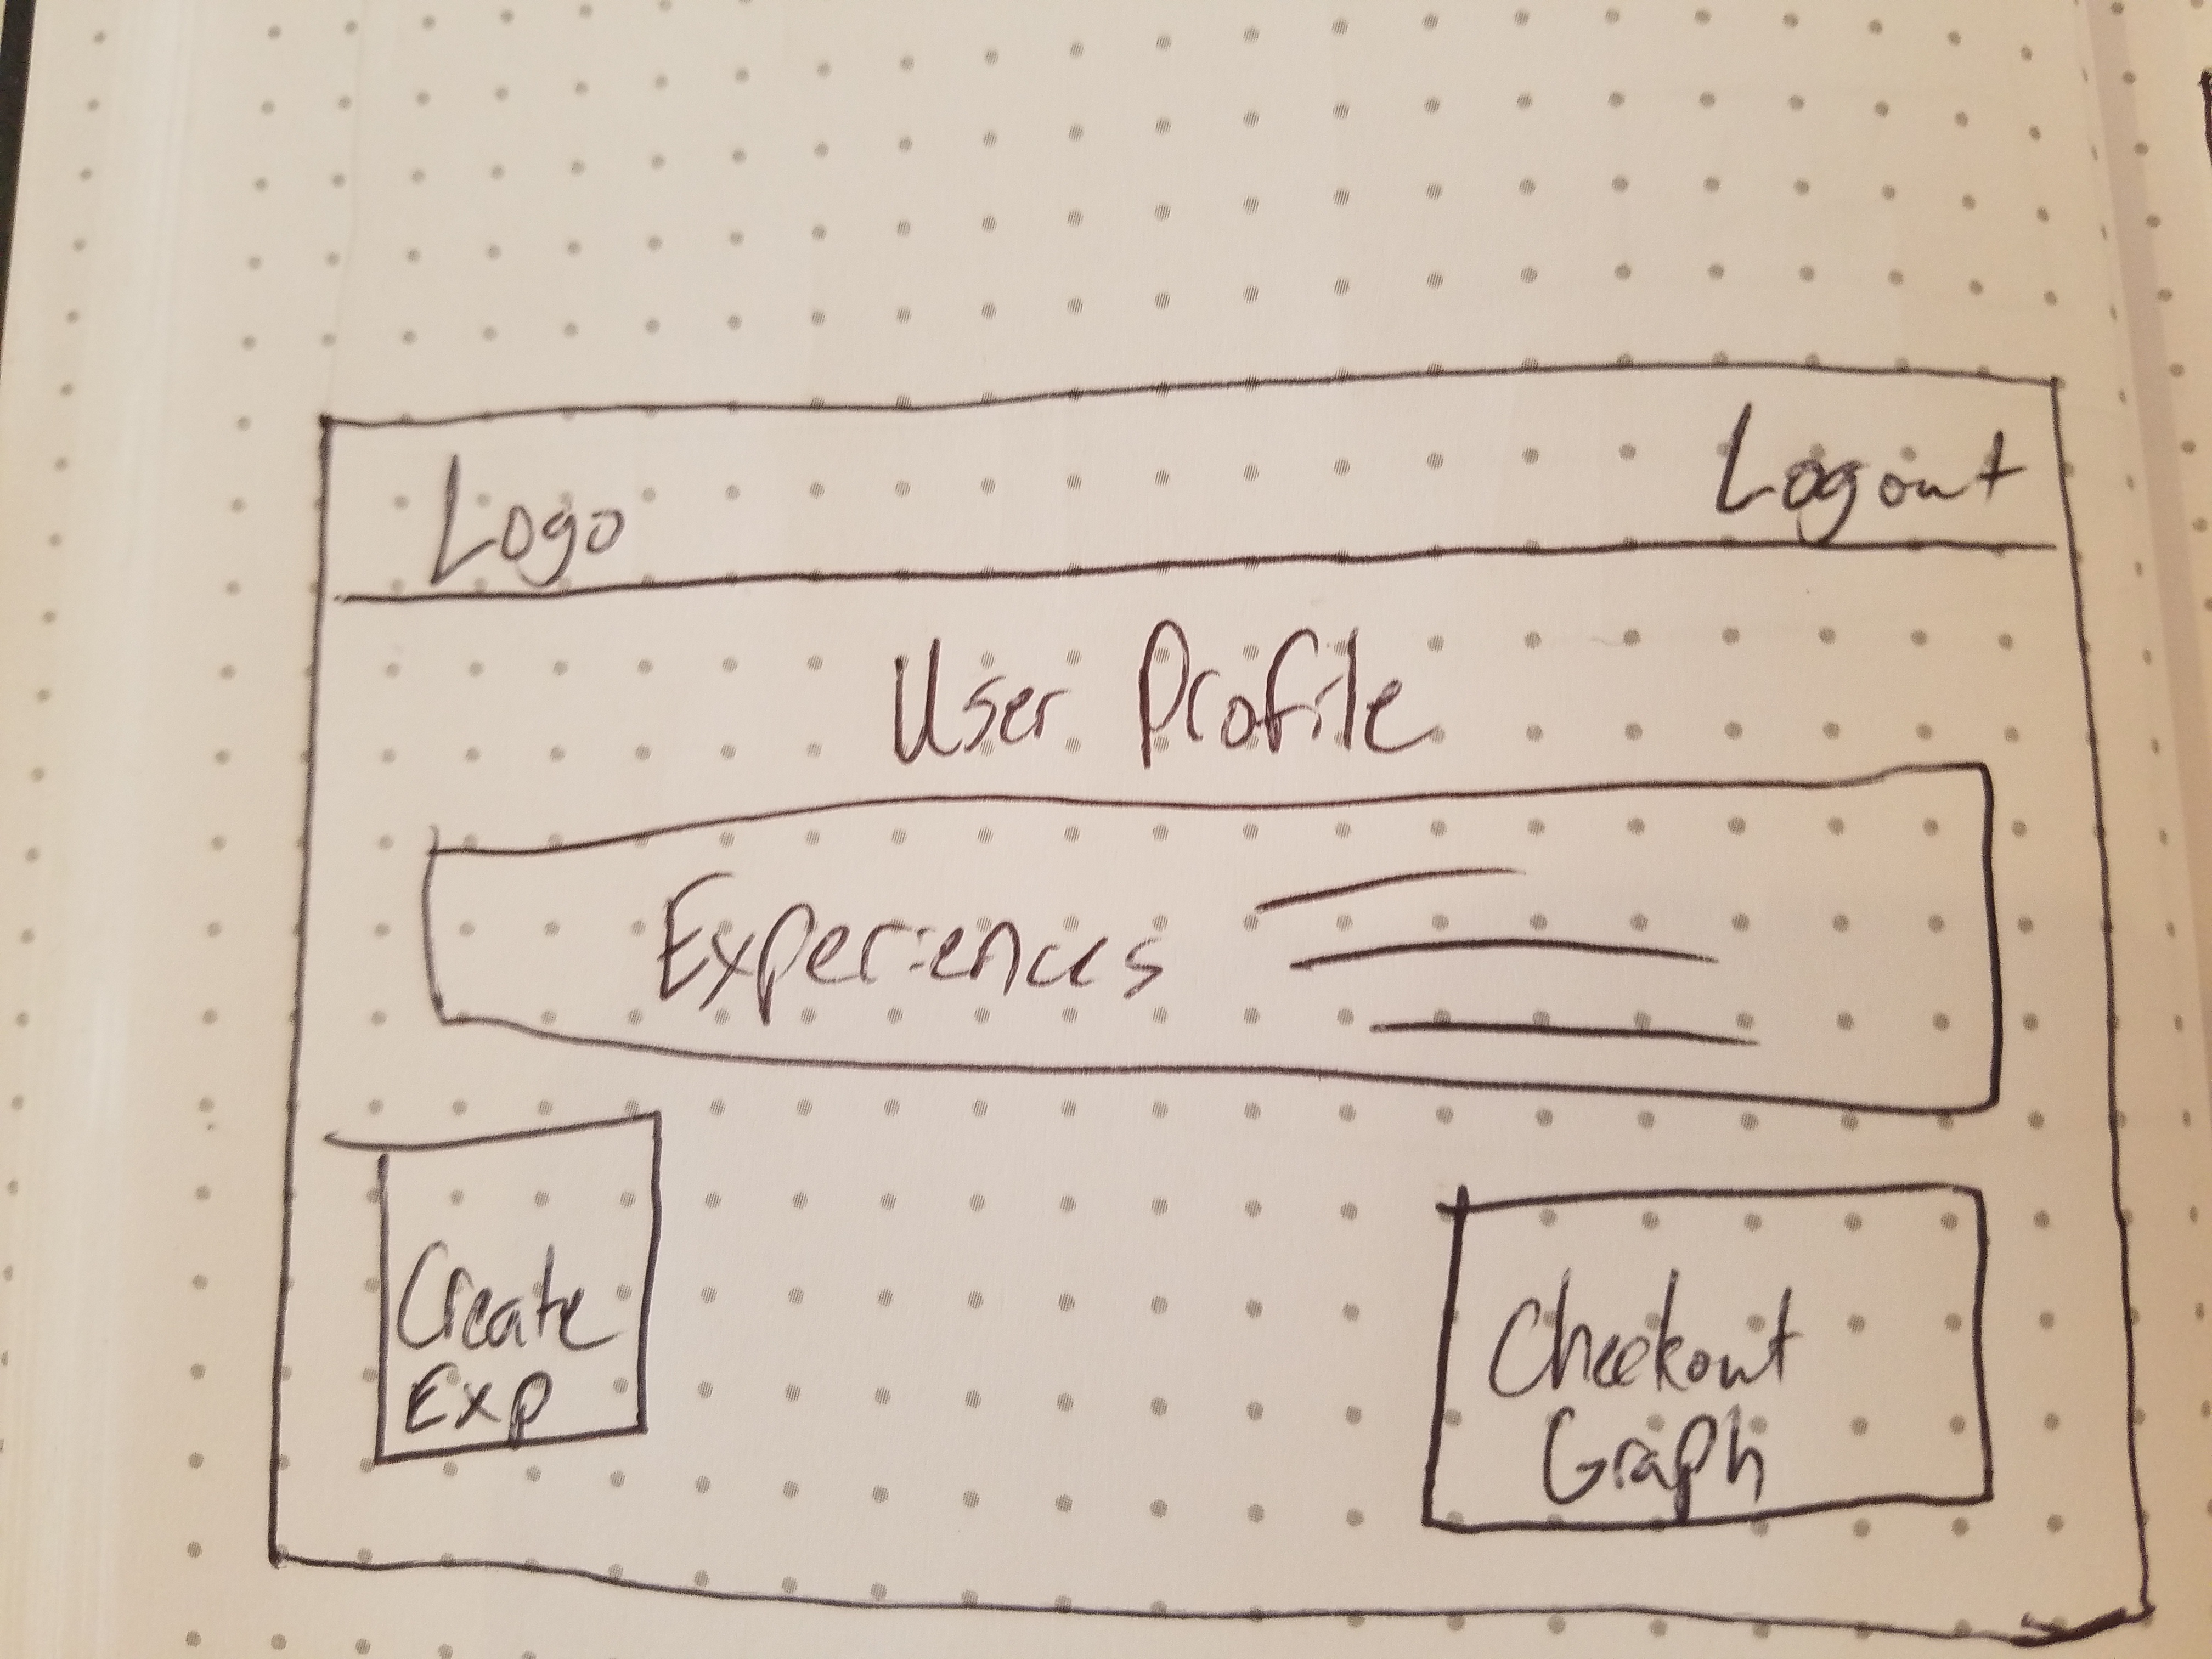 Logo Logout
User Profile
Experiences
Create
Exp
Checkout
Graph